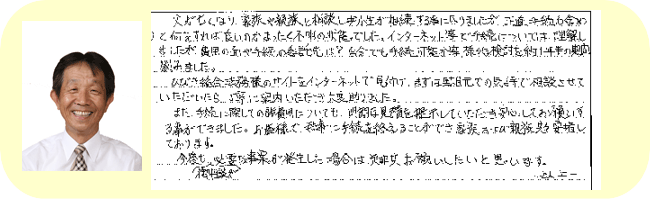 父が亡くなり、家族や親族と相談し、自分が相続する事になりましたが、正直、手続も含め
何をすれば良いのかまったく不明の状態でした。インターネット等で手続については理解し
ましたが、費用の面や手続の委託先は？自分でも手続可能か等、様々な検討を約1ヶ月の期間
悩みました。
ひびき総合法務様のサイトをインターネットで見付け、まずは無料での見積で相談させて
いただいたら、丁寧に案内いただき大変助かりました。
また、手続に際しての諸費用についても、明朗な見積を提示していただき安心してお願いする
事ができました。お蔭様で、無事に手続を終えることができ、家族および親族共々安堵し
ております。
今後も、必要な事案が発生した場合は是非又お願いしたいと思います。